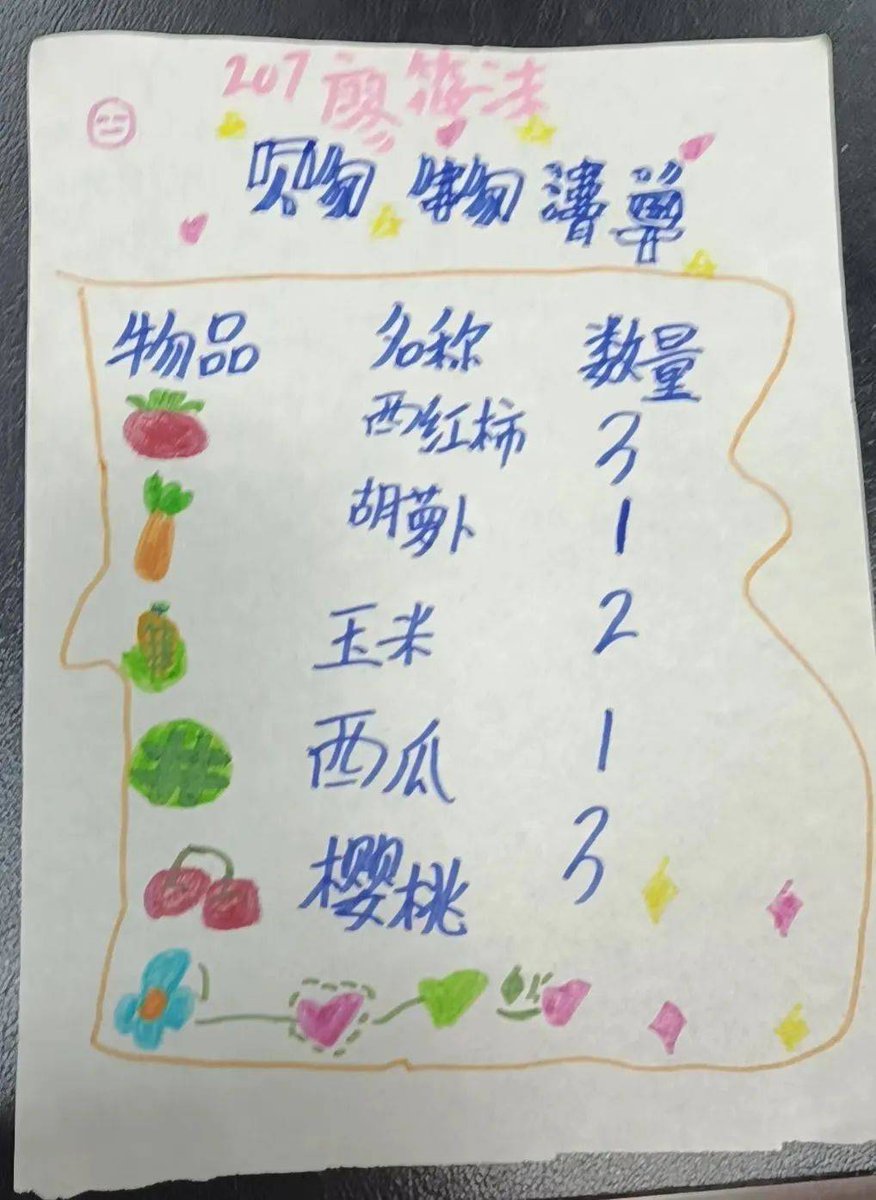 207 廖
物 清单
物品 名称 数量
西红柿 3
胡萝卜 1
玉米 2
西瓜 1
樱桃 3